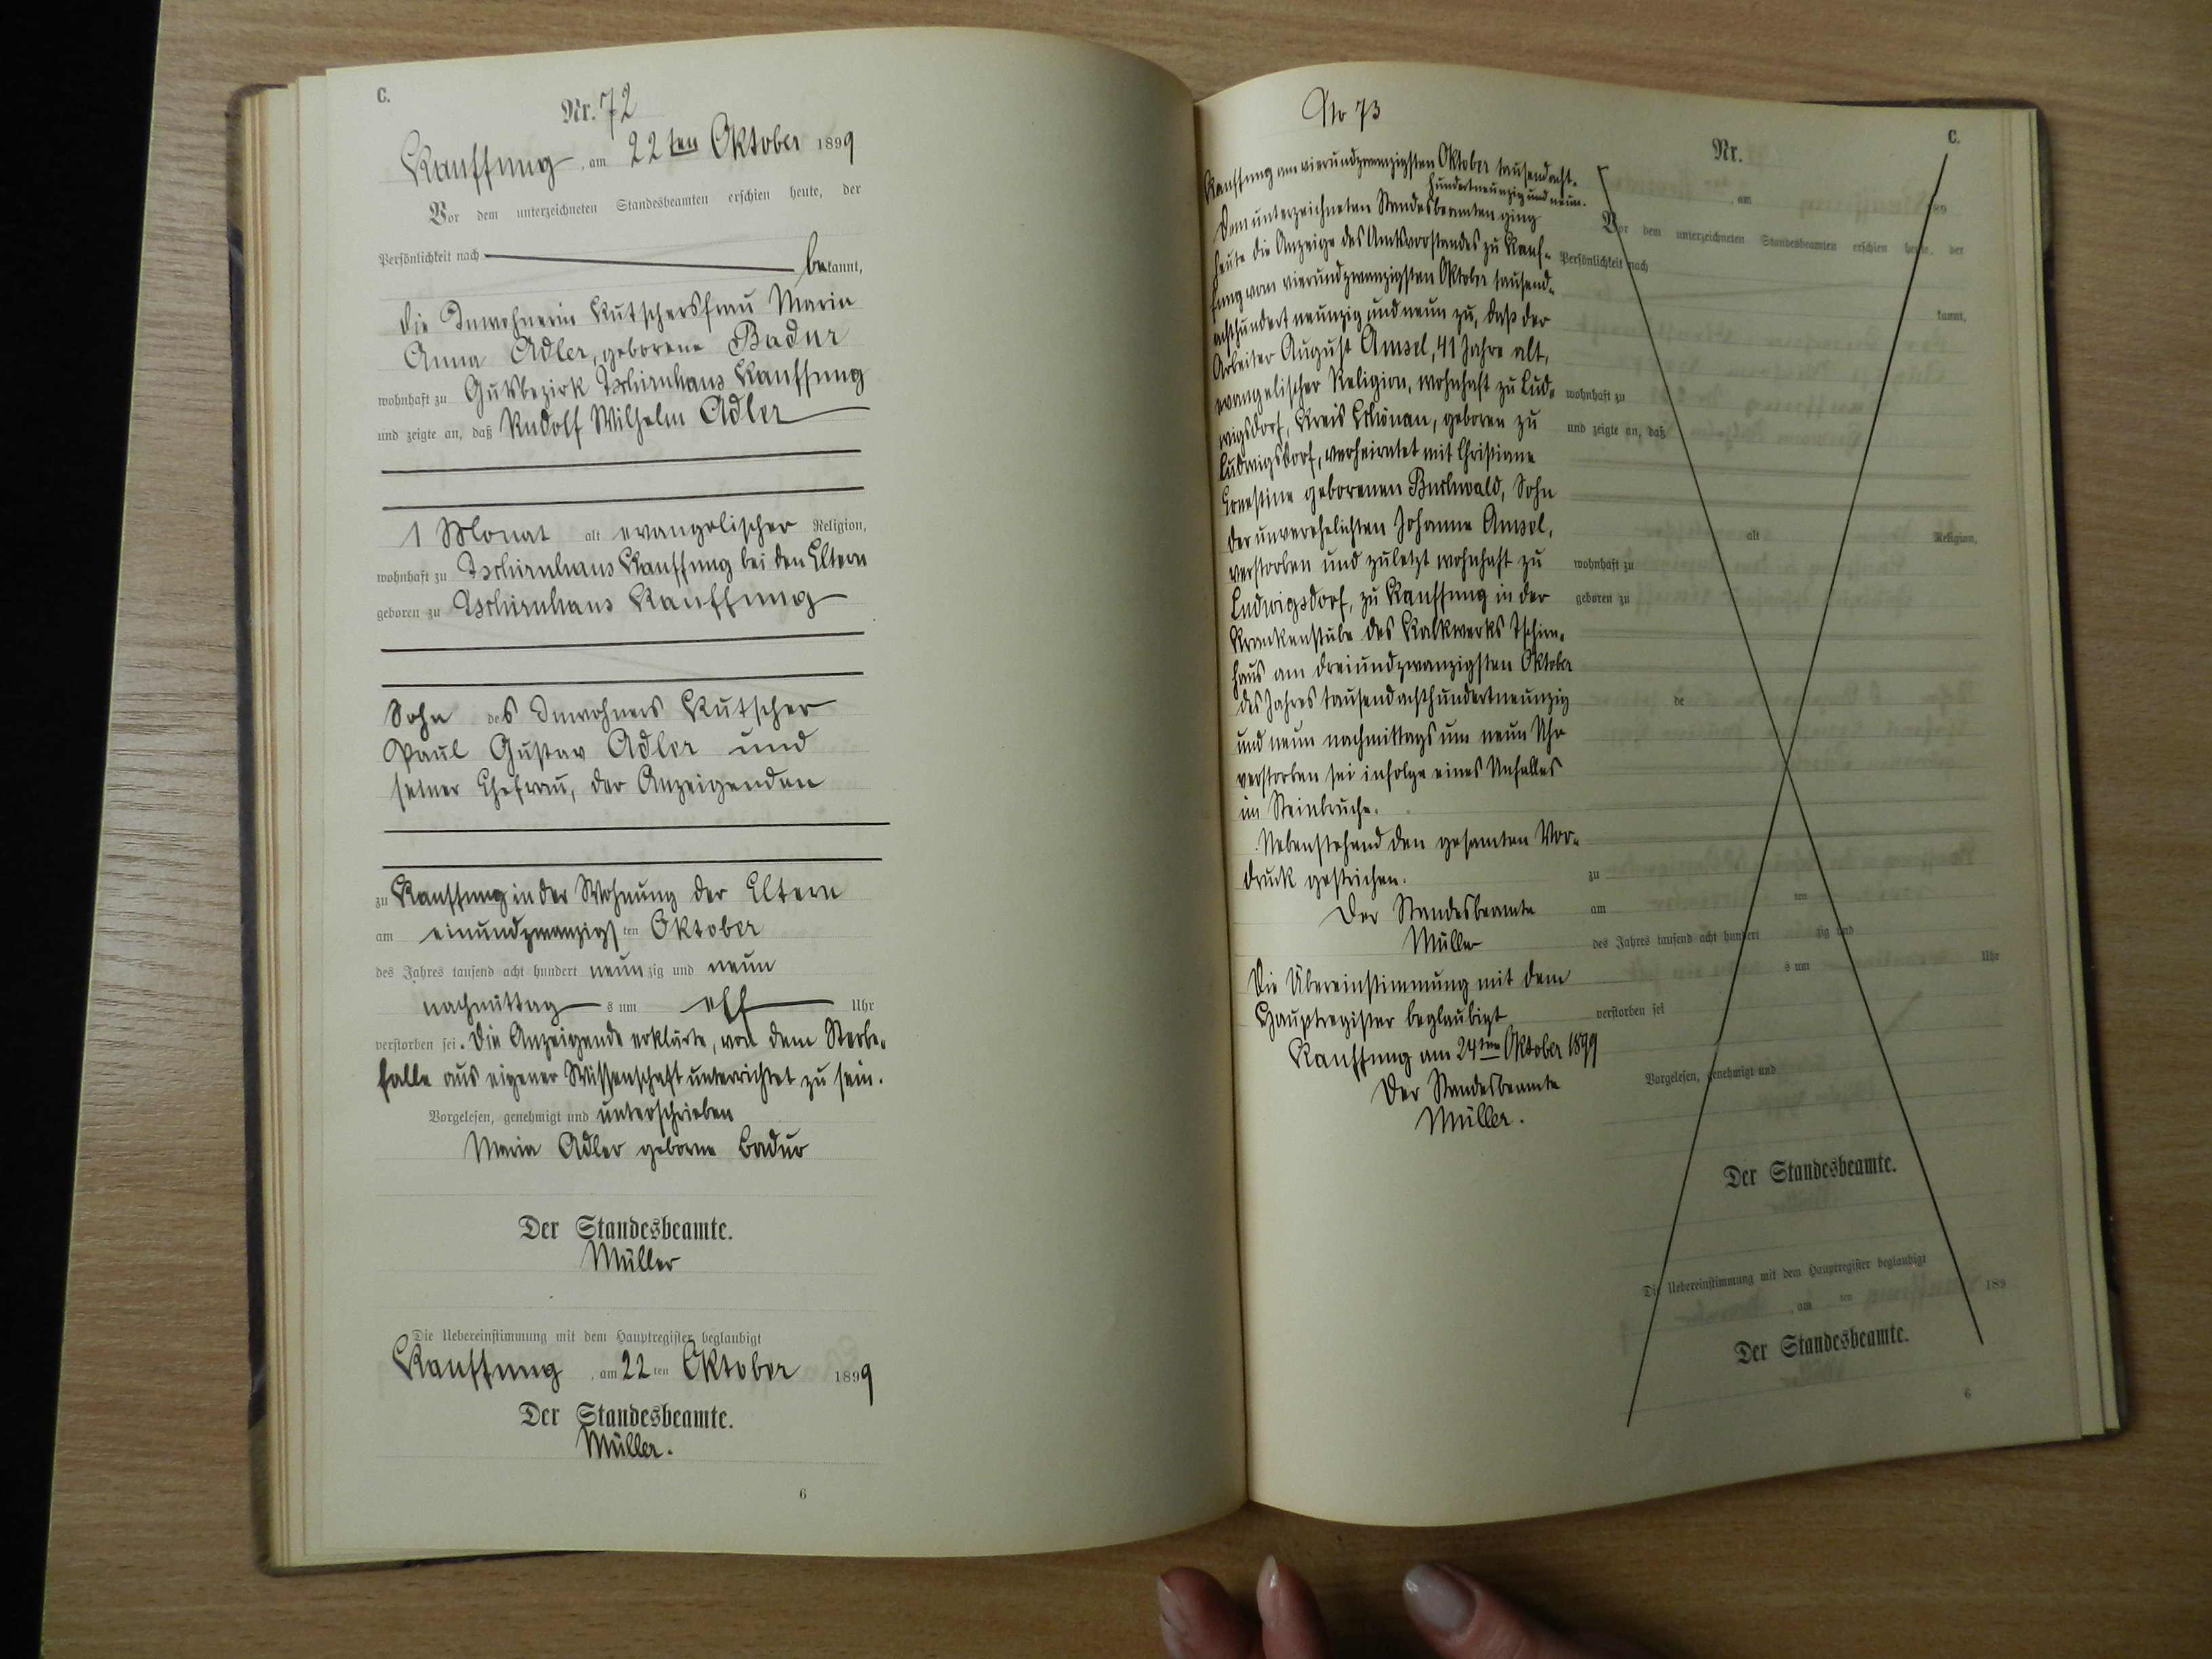 C.
Nr. 72
Kauffung, am 22ten Oktober 1899
Vor dem unterzeichneten Standesbeamten erschien heute, der
Persönlichkeit nach bekannt,
die Inwohnerin Kutschersfrau Maria
Anna Adler, geborene Badur
wohnhaft zu Gutsbezirk Tschirnhaus Kauffung
und zeigte an, daß Rudolf Wilhelm Adler
1 Monat alt evangelischer Religion,
wohnhaft zu Tschirnhaus Kauffung bei den Eltern
geboren zu Tschirnhaus Kauffung
Sohn des Inwohners Kutscher
Paul Gustav Adler und
seiner Ehefrau, der Anzeigenden
zu Kauffung in der Wohnung der Eltern
am einundzwanzigsten Oktober
des Jahres tausend acht hundert neunzig und neun
nachmittags um elf Uhr
verstorben sei. Die Anzeigende erklärte, von dem Sterbe-
falle aus eigener Wissenschaft unterrichtet zu sein.
Vorgelesen, genehmigt und unterschrieben
Maria Adler geborne Badur
Der Standesbeamte.
Müller
Die Uebereinstimmung mit dem Hauptregister beglaubigt
Kauffung, am 22ten Oktober 1899
Der Standesbeamte.
Müller.
6
No 73
Kauffung am vierundzwanzigsten Oktober tausendacht-
hundertneunzig und neun.
Dem unterzeichneten Standesbeamten ging
heute die Anzeige des Amtsvorstandes zu Kauf-
fung vom vierundzwanzigsten Oktober tausend-
achthundert neunzig und neun zu, daß der
Arbeiter August Amsel, 41 Jahre alt,
evangelischer Religion, wohnhaft zu Lud-
wigsdorf, Kreis Schönau, geboren zu
Ludwigsdorf, verheiratet mit Christiane
Ernestine geborenen Buchwald, Sohn
der unverehelichten Johanne Amsel,
verstorben und zuletzt wohnhaft zu
Ludwigsdorf, zu Kauffung in der
Krankenstube des Kalkwerks Tschirn-
haus am dreiundzwanzigsten Oktober
des Jahres tausendachthundertneunzig
und neun nachmittags um neun Uhr
verstorben sei infolge eines Unfalles
im Steinbruche.
Nebenstehend den gesamten Vor-
druck gestrichen.
Der Standesbeamte
Müller
Die Übereinstimmung mit dem
Hauptregister beglaubigt
Kauffung am 24ten Oktober 1899
Der Standesbeamte
Müller.
C.
Nr.
, am 189
Vor dem unterzeichneten Standesbeamten erschien heute, der
Persönlichkeit nach
kannt,
wohnhaft zu
und zeigte an, daß
alt Religion,
wohnhaft zu
geboren zu
de
zu
am ten
des Jahres tausend acht hundert zig und
s um Uhr
verstorben sei
Vorgelesen, genehmigt und
Der Standesbeamte.
Die Uebereinstimmung mit dem Hauptregister beglaubigt
, am ten 189
Der Standesbeamte.
6